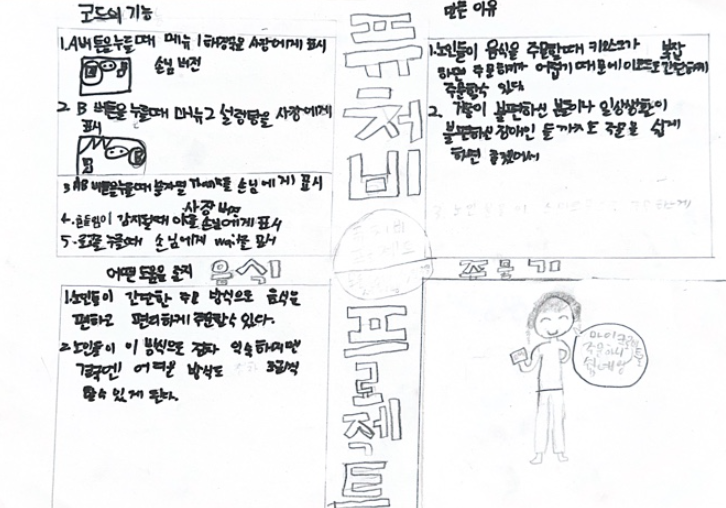 코드의 기능
1. A버튼을 누를때 메뉴 1 해장국을 사장에게 표시
손님 버전
2. B 버튼을 누를때 메뉴2 설렁탕을 사장에게
표시
3. AB 버튼을 누를때 손님에게 표시
사장 버전
4. 흔들림이 감지될때 손님에게 표시
5. 로고를 누를때 손님에게 wait를 표시
만든 이유
1. 노인들이 음식을 주문할때 키오스크가 복잡
하면 주문하기가 어렵기 때문에 이 코드로 간단하게
주문할수 있다
2. 거동이 불편하신 분들이나 일상생활이
불편하신 장애인 들까지도 주문을 쉽게
하면 좋겠어서
퓨처비
프로젝트
음식
주문기
어떤 도움을 줄지
1. 노인들이 간단한 주문 방식으로 음식을
편하고 편리하게 주문할수 있다.
2. 노인들이 이 방식으로 점차 익숙해지면
어려운 방식도
할수 있게 된다.
마이크로비트로
주문하니
쉽네영